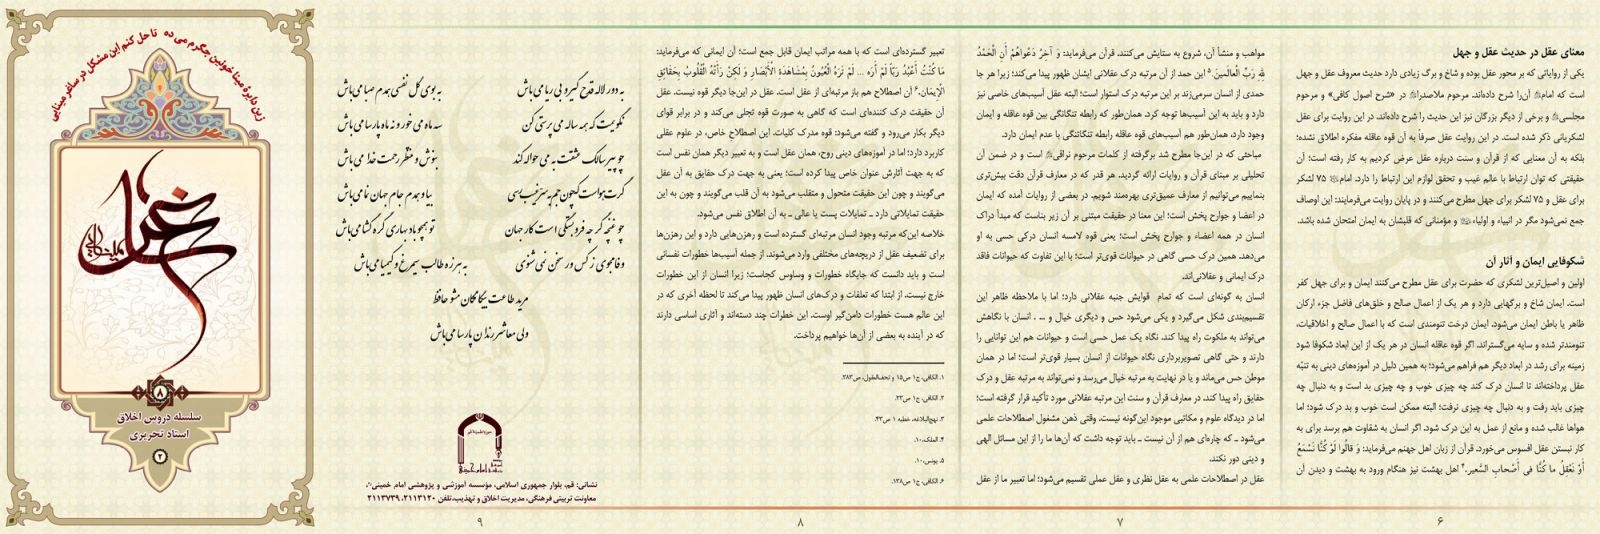 معنای عقل در حدیث عقل و جهل
یکی از روایاتی که بر محور عقل بوده و شاخ و برگ زیادی دارد حدیث معروف عقل و جهل
است که امام آن‌را شرح داده‌اند. مرحوم ملاصدرا در «شرح اصول کافی» و مرحوم
مجلسی و برخی از دیگر بزرگان نیز این حدیث را شرح داده‌اند. در این روایت برای عقل
لشکریانی ذکر شده است. در این روایت عقل صرفاً به آن قوه عاقله مفکره اطلاق نشده؛
بلکه به آن معنایی که از قرآن و سنت درباره عقل عرض کردیم به کار رفته است؛ آن
حقیقتی که توان ارتباط با عالم غیب و تحقق لوازم این ارتباط را دارد. امام ۷۵ لشکر
برای عقل و ۷۵ لشکر برای جهل مطرح می‌کنند و در پایان روایت می‌فرمایند: این اوصاف
جمع نمی‌شود مگر در انبیاء و اولیاء و مؤمنانی که قلبشان به ایمان امتحان شده باشد.
شکوفایی ایمان و آثار آن
اولین و اصیل‌ترین لشکری که حضرت برای عقل مطرح می‌کنند ایمان و برای جهل کفر
است. ایمان شاخ و برگهایی دارد و هر یک از اعمال صالح و خلق‌های فاضل جزء ارکان
ظاهر یا باطن ایمان می‌شود. ایمان درخت تنومندی است که با اعمال صالح و اخلاقیات،
تنومندتر شده و سایه می‌گستراند. اگر قوه عاقله انسان در هر یک از این ابعاد شکوفا شود
زمینه برای رشد در ابعاد دیگر هم فراهم می‌شود؛ به همین دلیل در آموزه‌های دینی به تنبّه
عقل پرداخته‌اند تا انسان درک کند چه چیزی خوب و چه چیزی بد است و به دنبال چه
چیزی باید رفت و به دنبال چه چیزی نرفت؛ البته ممکن است خوب و بد درک شود؛ اما
هواها غالب شده و مانع از عمل به این درک شود. اگر انسان به شقاوت هم برسد برای به
کار نبستن عقل افسوس می‌خورد. قرآن از زبان اهل جهنم می‌فرماید: وَ قالُوا لَوْ كُنَّا نَسْمَعُ
أَوْ نَعْقِلُ ما كُنَّا في‏ أَصْحابِ السَّعير.۴ اهل بهشت نیز هنگام ورود به بهشت و دیدن آن
۶
مواهب و منشأ آن، شروع به ستایش می‌کنند. قرآن می‌فرماید: وَ آخِرُ دَعْواهُمْ أَنِ الْحَمْدُ
لِلَّهِ رَبِّ الْعالَمينَ.۵ این حمد از آن مرتبه درک عقلانی ایشان ظهور پیدا می‌کند؛ زیرا هر جا
حمدی از انسان سرمی‌زند بر این مرتبه درک استوار است؛ البته عقل آسیب‌های خاصی نیز
دارد و باید به این آسیب‌ها توجه کرد. همان‌طور که رابطه تنگاتنگی بین قوه عاقله و ایمان
وجود دارد، همان‌طور هم آسیب‌های قوه عاقله رابطه تنگاتنگی با عدم ایمان دارد.
مباحثی که در این‌جا مطرح شد برگرفته از کلمات مرحوم نراقی است و در ضمن آن
تحلیلی بر مبنای قرآن و روایات ارائه گردید. هر قدر که در معارف قرآن دقت بیش‌تری
بنماییم می‌توانیم از معارف عمیق‌تری بهره‌مند شویم. در بعضی از روایات آمده که ایمان
در اعضا و جوارح پخش است؛ این معنا در حقیقت مبتنی بر آن زیر بناست که مبدأ دراک
انسان در همه اعضاء و جوارح پخش است؛ یعنی قوه لامسه انسان درکی حسی به او
می‌دهد. همین درک حسی گاهی در حیوانات قوی‌تر است؛ با این تفاوت که حیوانات فاقد
درک ایمانی و عقلانی‌اند.
انسان به گونه‌ای است که تمام قوایش جنبه عقلانی دارد؛ اما با ملاحظه ظاهر این
تقسیم‌بندی شکل می‌گیرد و یکی می‌شود حس و دیگری خیال و ... . انسان با نگاهش
می‌تواند به ملکوت راه پیدا کند. نگاه یک عمل حسی است و حیوانات هم این توانایی را
دارند و حتی گاهی تصویربرداری نگاه حیوانات از انسان بسیار قوی‌تر است؛ اما در همان
موطن حس می‌ماند و یا در نهایت به مرتبه خیال می‌رسد و نمی‌تواند به مرتبه عقل و درک
حقایق راه پیدا کند. در معارف قرآن و سنت این مرتبه عقلانی مورد تأکید قرار گرفته است؛
اما در دیدگاه علوم و مکاتبی موجود این‌گونه نیست. وقتی ذهن مشغول اصطلاحات علمی
می‌شود ـ که چاره‌ای هم از آن نیست ـ باید توجه داشت که آن‌ها ما را از این مسائل الهی
و دینی دور نکند.
عقل در اصطلاحات علمی به عقل نظری و عقل عملی تقسیم می‌شود؛ اما تعبیر ما از عقل
۷
تعبیر گسترده‌ای است که با همه مراتب ایمان قابل جمع است؛ آن ایمانی که می‌فرماید:
مَا كُنْتُ أَعْبُدُ رَبّاً لَمْ أَرَهُ ... لَمْ تَرَهُ الْعُيُونُ بِمُشَاهَدَةِ الْأَبْصَارِ وَ لَكِنْ رَأَتْهُ الْقُلُوبُ بِحَقَائِقِ
الْإِيمَان.۶ آن اصطلاح هم باز مرتبه‌ای از عقل است. عقل در این‌جا دیگر قوه نیست. عقل
آن حقیقت درک کننده‌ای است که گاهی به صورت قوه تجلی می‌کند و در برابر قوای
دیگر بکار می‌رود و گفته می‌شود: قوه مدرک کلیات. این اصطلاحِ خاص، در علوم عقلی
کاربرد دارد؛ اما در آموزه‌های دینی روح، همان عقل است و به تعبیر دیگر همان نفس است
که به جهت آثارش عنوان خاص پیدا کرده است؛ یعنی به جهت درک حقایق به آن عقل
می‌گویند و چون این حقیقت متحول و متقلب می‌شود به آن قلب می‌گویند و چون به این
حقیقت تمایلاتی دارد ـ تمایلات پست یا عالی ـ به آن اطلاق نفس می‌شود.
خلاصه این‌که مرتبه وجود انسان مرتبه‌ای گسترده است و رهزن‌هایی دارد و این رهزن‌ها
برای تضعیف عقل از دریچه‌های مختلفی وارد می‌شوند. از جمله آسیب‌ها خطورات نفسانی
است و باید دانست که جایگاه خطورات و وساوس کجاست؛ زیرا انسان از این خطورات
خارج نیست. از ابتدا که تعلقات و درک‌های انسان ظهور پیدا می‌کند تا لحظه آخری که در
این عالم هست خطورات دامن‌گیر اوست. این خطرات چند دسته‌اند و آثاری اساسی دارند
که در آینده به بعضی از آن‌ها خواهیم پرداخت.
۱. الکافی، ج۱ ص۱۵ و تحف‌العقول، ص۳۸۳.
۲. الکافی، ج۱ ص۲۳.
۳. نهج‌البلاغه، خطبه ۱ ص۴۳.
۴. الملک،۱۰.
۵. یونس،۱۰.
۶. الکافی، ج۱ ص۱۳۸.
۸
به دور لاله قدح گیر و بی ریا می باش به بوی گل نفسی همدم صبا می باش
نگویمت که همه ساله می پرستی کن سه ماه می خور و نه ماه پارسا می باش
چو پیر سالک عشقت به می حواله کند بنوش و منتظر رحمت خدا می باش
گرت هواست که چون جم به سر غیب رسی بیا و همدم جام جهان نما می باش
چو غنچه گر چه فروبستگی است کار جهان تو همچو باد بهاری گره گشا می باش
وفا مجوی ز کس ور سخن نمی شنوی به هرزه طالب سیمرغ و کیمیا می باش
مرید طاعت بیگانگان مشو حافظ
ولی معاشر رندان پارسا می باش
نشانی: قم، بلوار جمهوری اسلامی، مؤسسه آموزشی و پژوهشی امام خمینی
معاونت تربیتی فرهنگی، مدیریت اخلاق و تهذیب،تلفن ۲۱۱۳۱۲۰، ۲۱۱۳۷۳۹
۹
زین دایرهٔ مینا خونین جگرم می ده تا حل کنم این مشکل در ساغر مینایی
عقل
۸
سلسله دروس اخلاق
استاد تحریری
۲